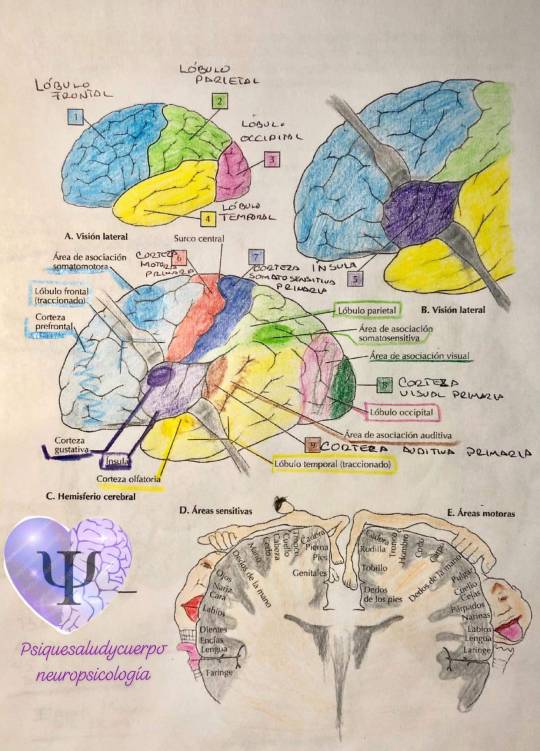 LÓBULO
FRONTAL
1
LÓBULO
PARIETAL
2
LÓBULO
OCCIPITAL
3
LÓBULO
TEMPORAL
4
A. Visión lateral
ÍNSULA
5
B. Visión lateral
Surco central
Área de asociación
somatomotora
CORTEZA
MOTORA
PRIMARIA
6
7
CORTEZA
SOMATOSENSITIVA
PRIMARIA
Lóbulo frontal
(traccionado)
Corteza
prefrontal
Lóbulo parietal
Área de asociación
somatosensitiva
Área de asociación visual
8
CORTEZA
VISUAL PRIMARIA
Lóbulo occipital
Área de asociación auditiva
9
CORTEZA AUDITIVA PRIMARIA
Lóbulo temporal (traccionado)
Corteza
gustativa
Ínsula
Corteza olfatoria
C. Hemisferio cerebral
D. Áreas sensitivas
E. Áreas motoras
Cadera
Tronco
Cuello
Cabeza
Codo
Mano
Dedos de la mano
Ojos
Nariz
Cara
Labios
Dientes
Encías
Lengua
Faringe
Pierna
Pies
Genitales
Cadera
Tronco
Hombro
Codo
Rodilla
Tobillo
Dedos
de los pies
Dedos de la mano
Pulgar
Cuello
Cejas
Párpados
Narinas
Labios
Lengua
Laringe
Ψ
Psiquesaludycuerpo
neuropsicología